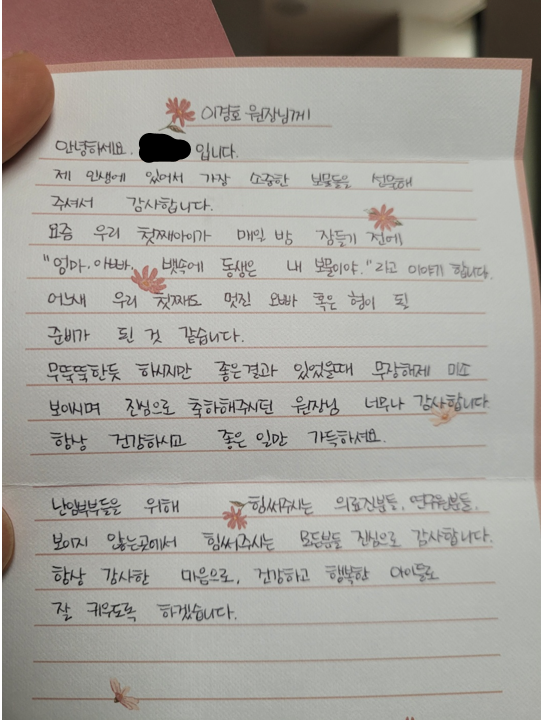 이경호 원장님께
안녕하세요. 입니다.
제 인생에 있어서 가장 소중한 보물들을 선물해
주셔서 감사합니다.
요즘 우리 첫째아이가 매일 밤 잠들기 전에
"엄마. 아빠. 뱃속에 동생은 내 보물이야." 라고 이야기 합니다.
어느새 우리 첫째도 멋진 오빠 혹은 형이 될
준비가 된 것 같습니다.
무뚝뚝한듯 하시지만 좋은결과 있었을때 무장해제 미소
보이시며 진심으로 축하해주시던 원장님 너무나 감사합니다.
항상 건강하시고 좋은 일만 가득하세요.
난임부부들을 위해 힘써주시는 의료진분들, 연구원분들,
보이지 않는곳에서 힘써주시는 모든분들 진심으로 감사합니다.
항상 감사한 마음으로, 건강하고 행복한 아이들로
잘 키우도록 하겠습니다.